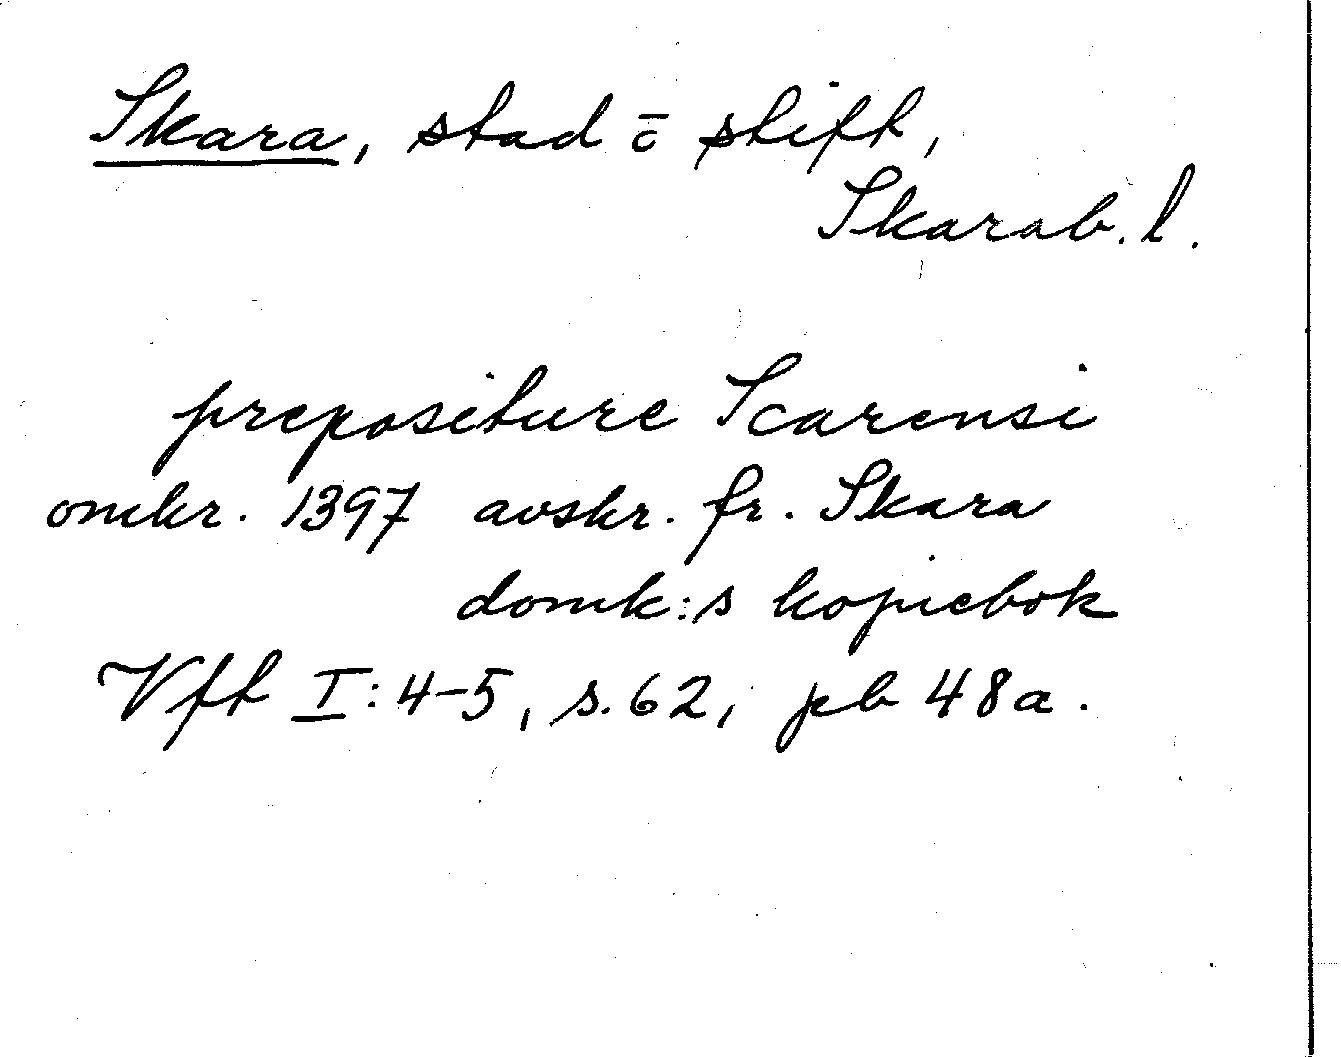 Skara, stad ō stift,
Skarab. l.
prepositure Scarensi
omkr. 1397 avskr. fr. Skara
domk:s kopiebok
Vft I:4-5, s. 62, pb 48a.